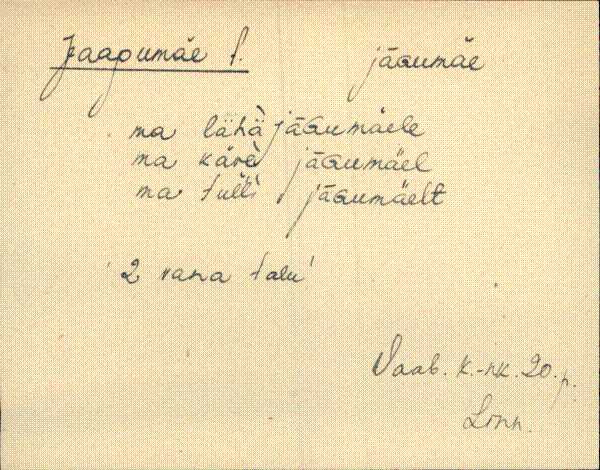 Jaapumäe t. jāɢumäe
ma lähä̀ jāɢumäele
ma käve̬ jāɢumäel
ma tul̀li jāɢumäelt
'2 vana talu'
Vaab. k.-nk. 20. p.
Linn.